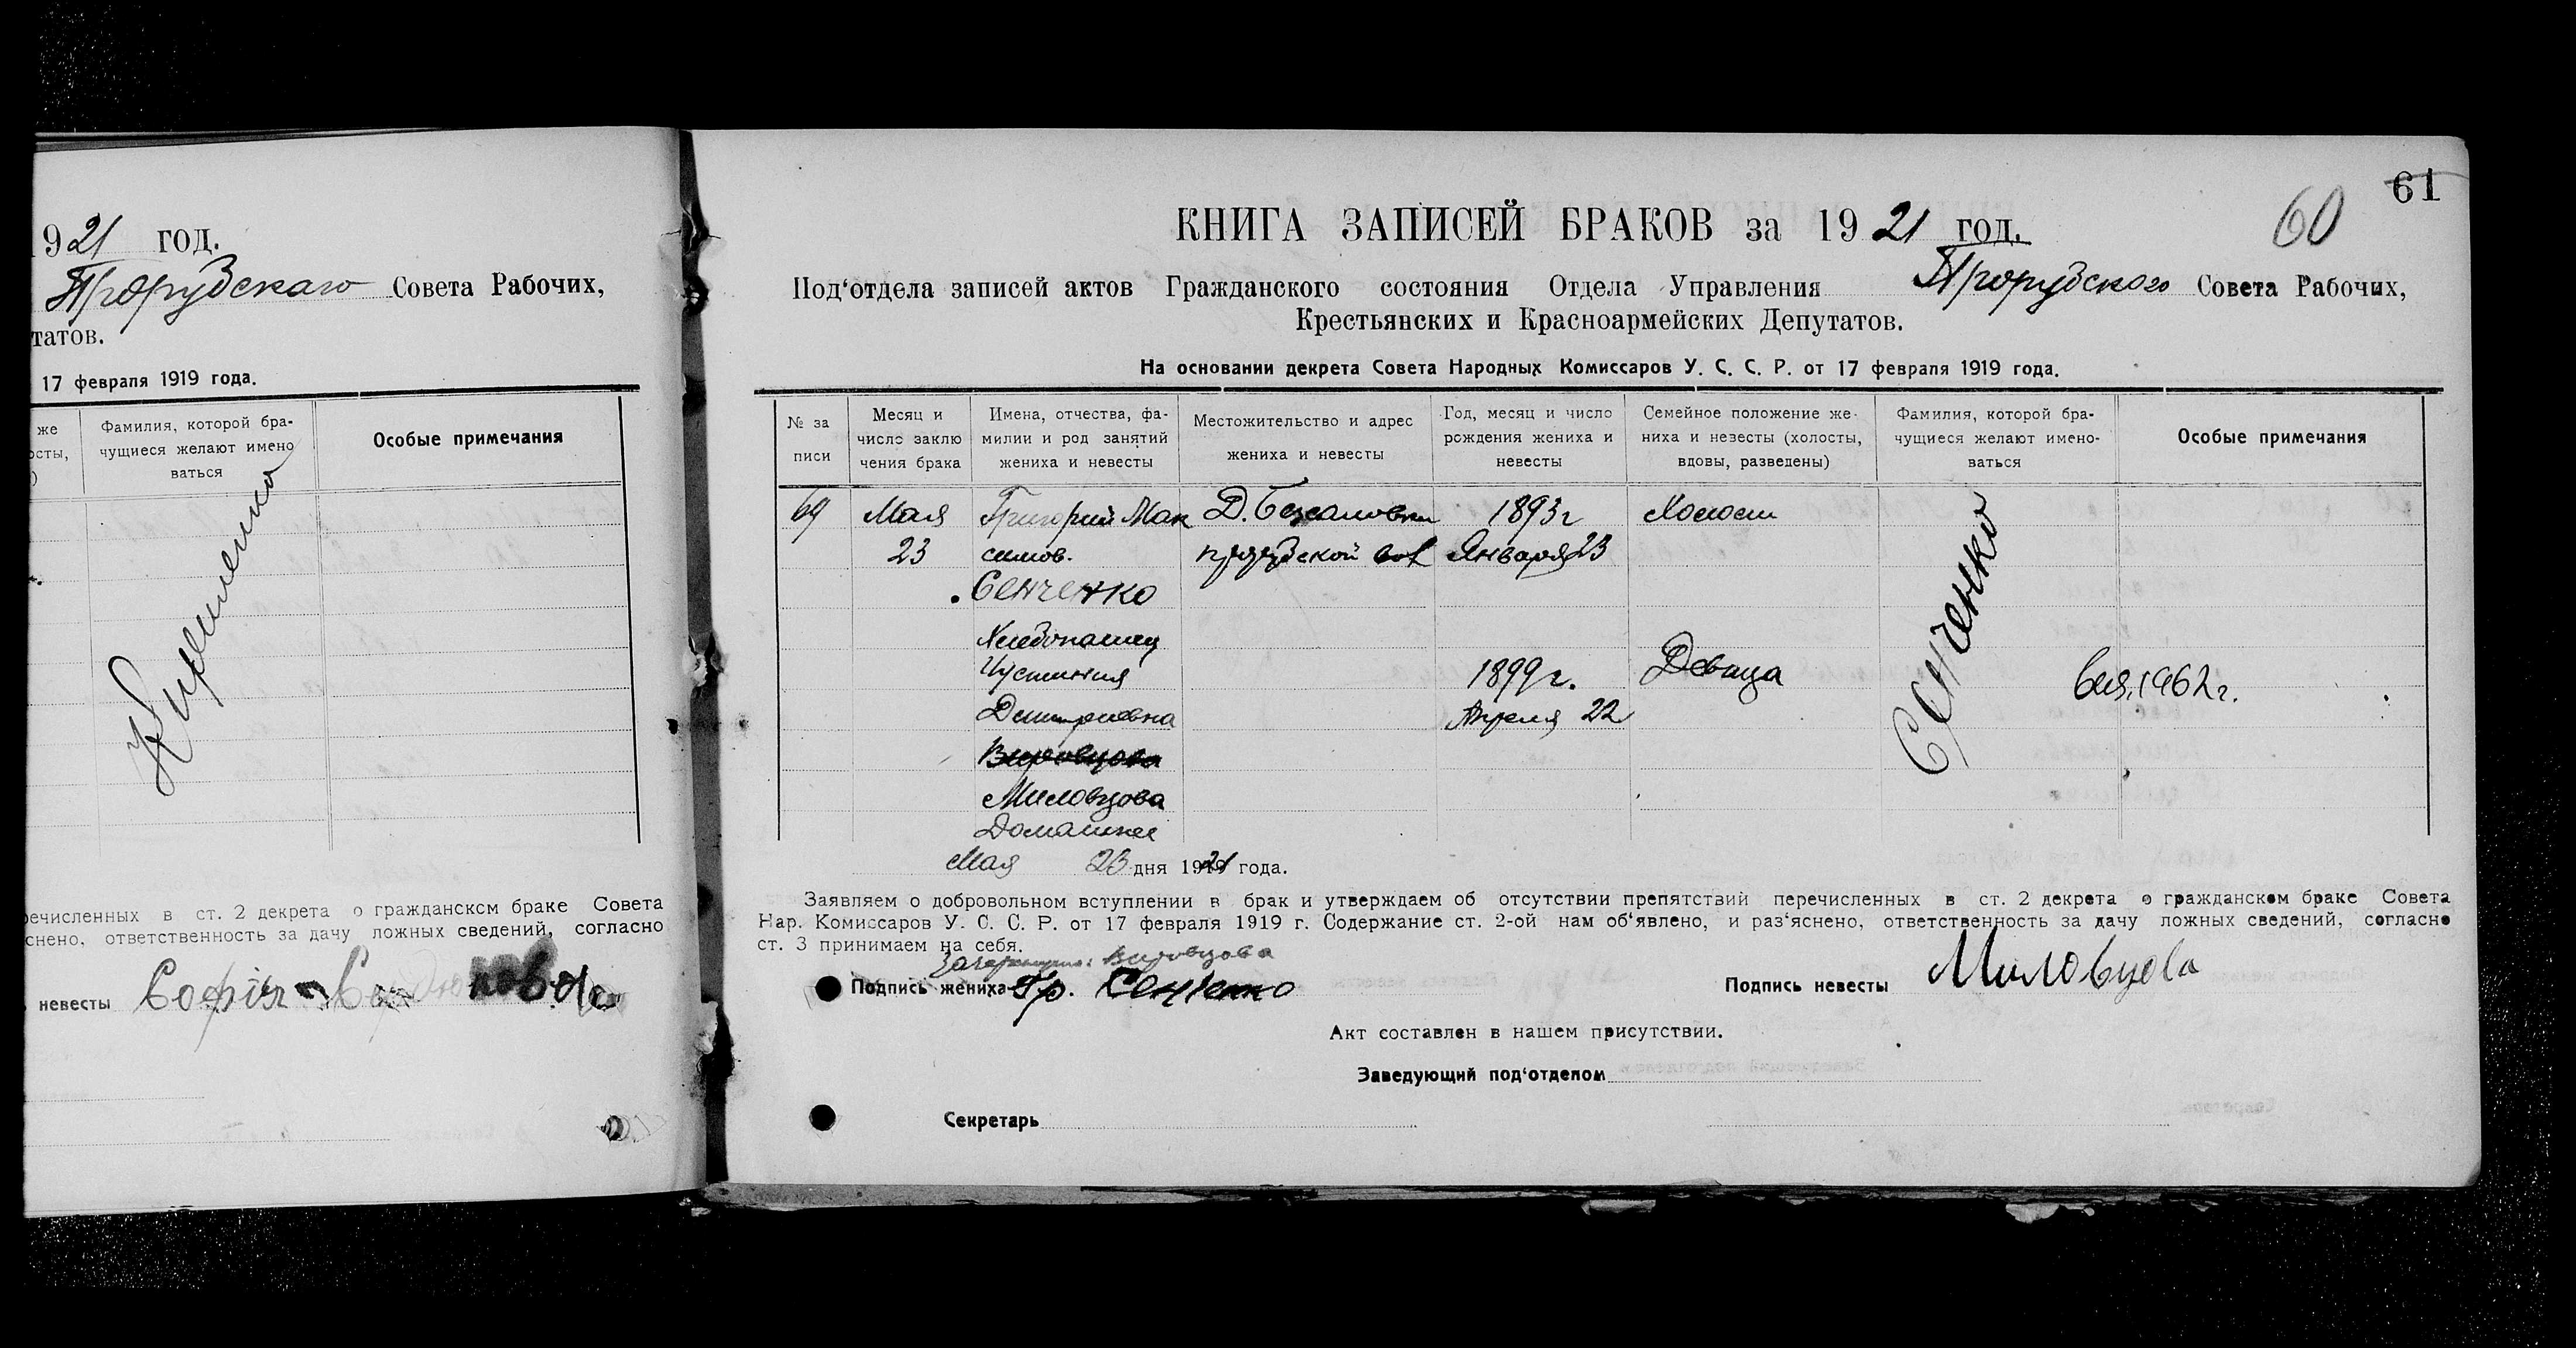 1921 год.
Прорубскаго Совета Рабочих,
татов.
17 февраля 1919 года.
же
осты,
)
Фамилия, которой бра-
чущиеся желают имено
ваться
Особые примечания
речисленных в ст. 2 декрета о гражданском браке Совета
снено, ответственность за дачу ложных сведений, согласно
невесты София
61
60
КНИГА ЗАПИСЕЙ БРАКОВ за 1921 год.
Под‘отдела записей актов Гражданского состояния Отдела Управления Прорубского Совета Рабочих,
Крестьянских и Красноармейских Депутатов.
На основании декрета Совета Народных Комиссаров У. С. С. Р. от 17 февраля 1919 года.
№ за
писи
Месяц и
число заклю
чения брака
Имена, отчества, фа-
милии и род занятий
жениха и невесты
Местожительство и адрес
жениха и невесты
Год, месяц и число
рождения жениха и
невесты
Семейное положение же-
ниха и невесты (холосты,
вдовы, разведены)
Фамилия, которой бра-
чущиеся желают имено-
ваться
Особые примечания
69
Мая
23
Григорий Мак
симов.
Сенченко
Хлебопашец
Иустиния
Дмитриевна
Вировцова
Миловцова
Домашнее
Д.
прорубской вол
1893 г
Января 23
1899 г.
Апреля 22
Холост
Девица
Сенченко
1962 г.
Мая 23 дня 1921 года.
Заявляем о добровольном вступлении в брак и утверждаем об отсутствии препятствий перечисленных в ст. 2 декрета о гражданском браке Совета
Нар. Комиссаров У. С. С. Р. от 17 февраля 1919 г. Содержание ст. 2-ой нам об‘явлено, и раз‘яснено, ответственность за дачу ложных сведений, согласно
ст. 3 принимаем на себя.
Зачеркнуто: Вировцова
Подпись жениха Гр. Сенченко
Подпись невесты Миловцова
Акт составлен в нашем присутствии.
Заведующий под‘отделом
Секретарь